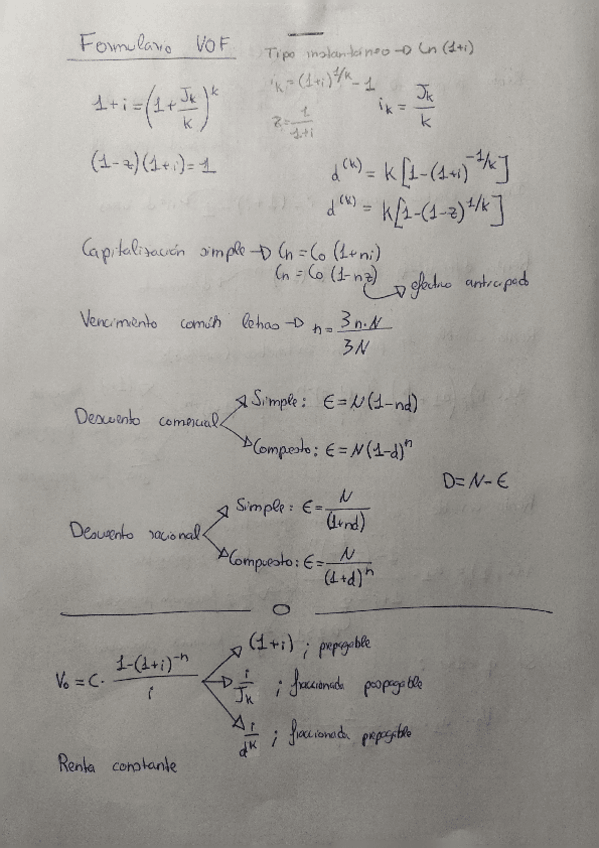 Formulario VOF
Tipo instantáneo → Ln (1+i)
i_k = (1+i)^{1/k} - 1
1+i = (1 + J_k/k)^k
i_k = J_k/k
z = 1/(1+i)
(1-z)(1+i) = 1
d^{(k)} = k[1-(1+i)^{-1/k}]
d^{(k)} = k[1-(1-z)^{1/k}]
Capitalización simple → Cn = Co (1+ni)
Cn = Co (1-nz)
efectivo anticipado
Vencimiento común letras → n = 3n·N / 3N
Descuento comercial
Simple: E = N(1-nd)
Compuesto: E = N(1-d)^n
D = N - E
Descuento racional
Simple: E = N/(1+nd)
Compuesto: E = N/(1+d)^n
V_0 = C · (1-(1+i)^{-n})/i
(1+i) ; prepagable
i/J_k ; fraccionada pospagable
i/d^k ; fraccionada prepagable
Renta constante